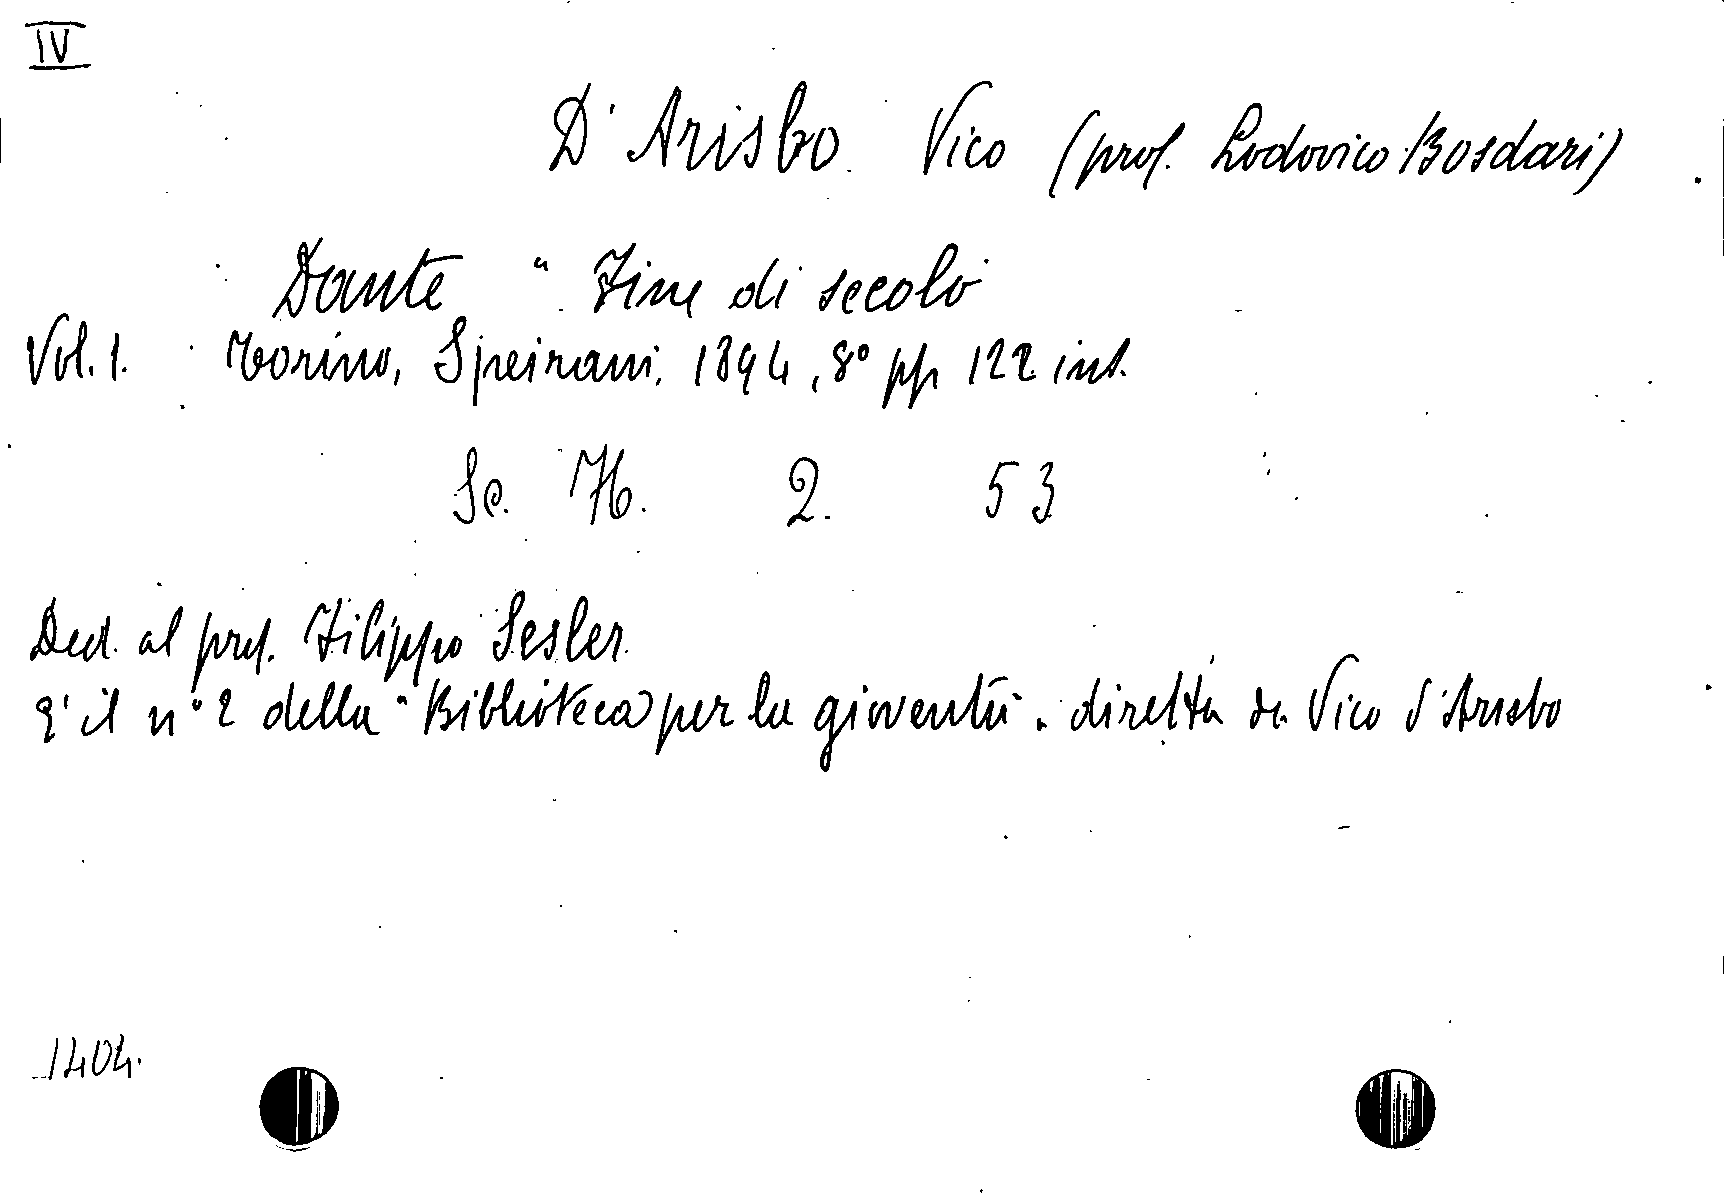 IV
D'Arisbo Vico (prof. Lodovico Bosdari)
Dante " Fine di secolo
Vol. 1. Torino, Speirani, 1894, 8° pp 122 int.
Sc. H. 2. 53
Ded. al prof. Filippo Sesler
E' il n° 2 della "Biblioteca per la gioventù" diretta da Vico d'Arisbo
1404.